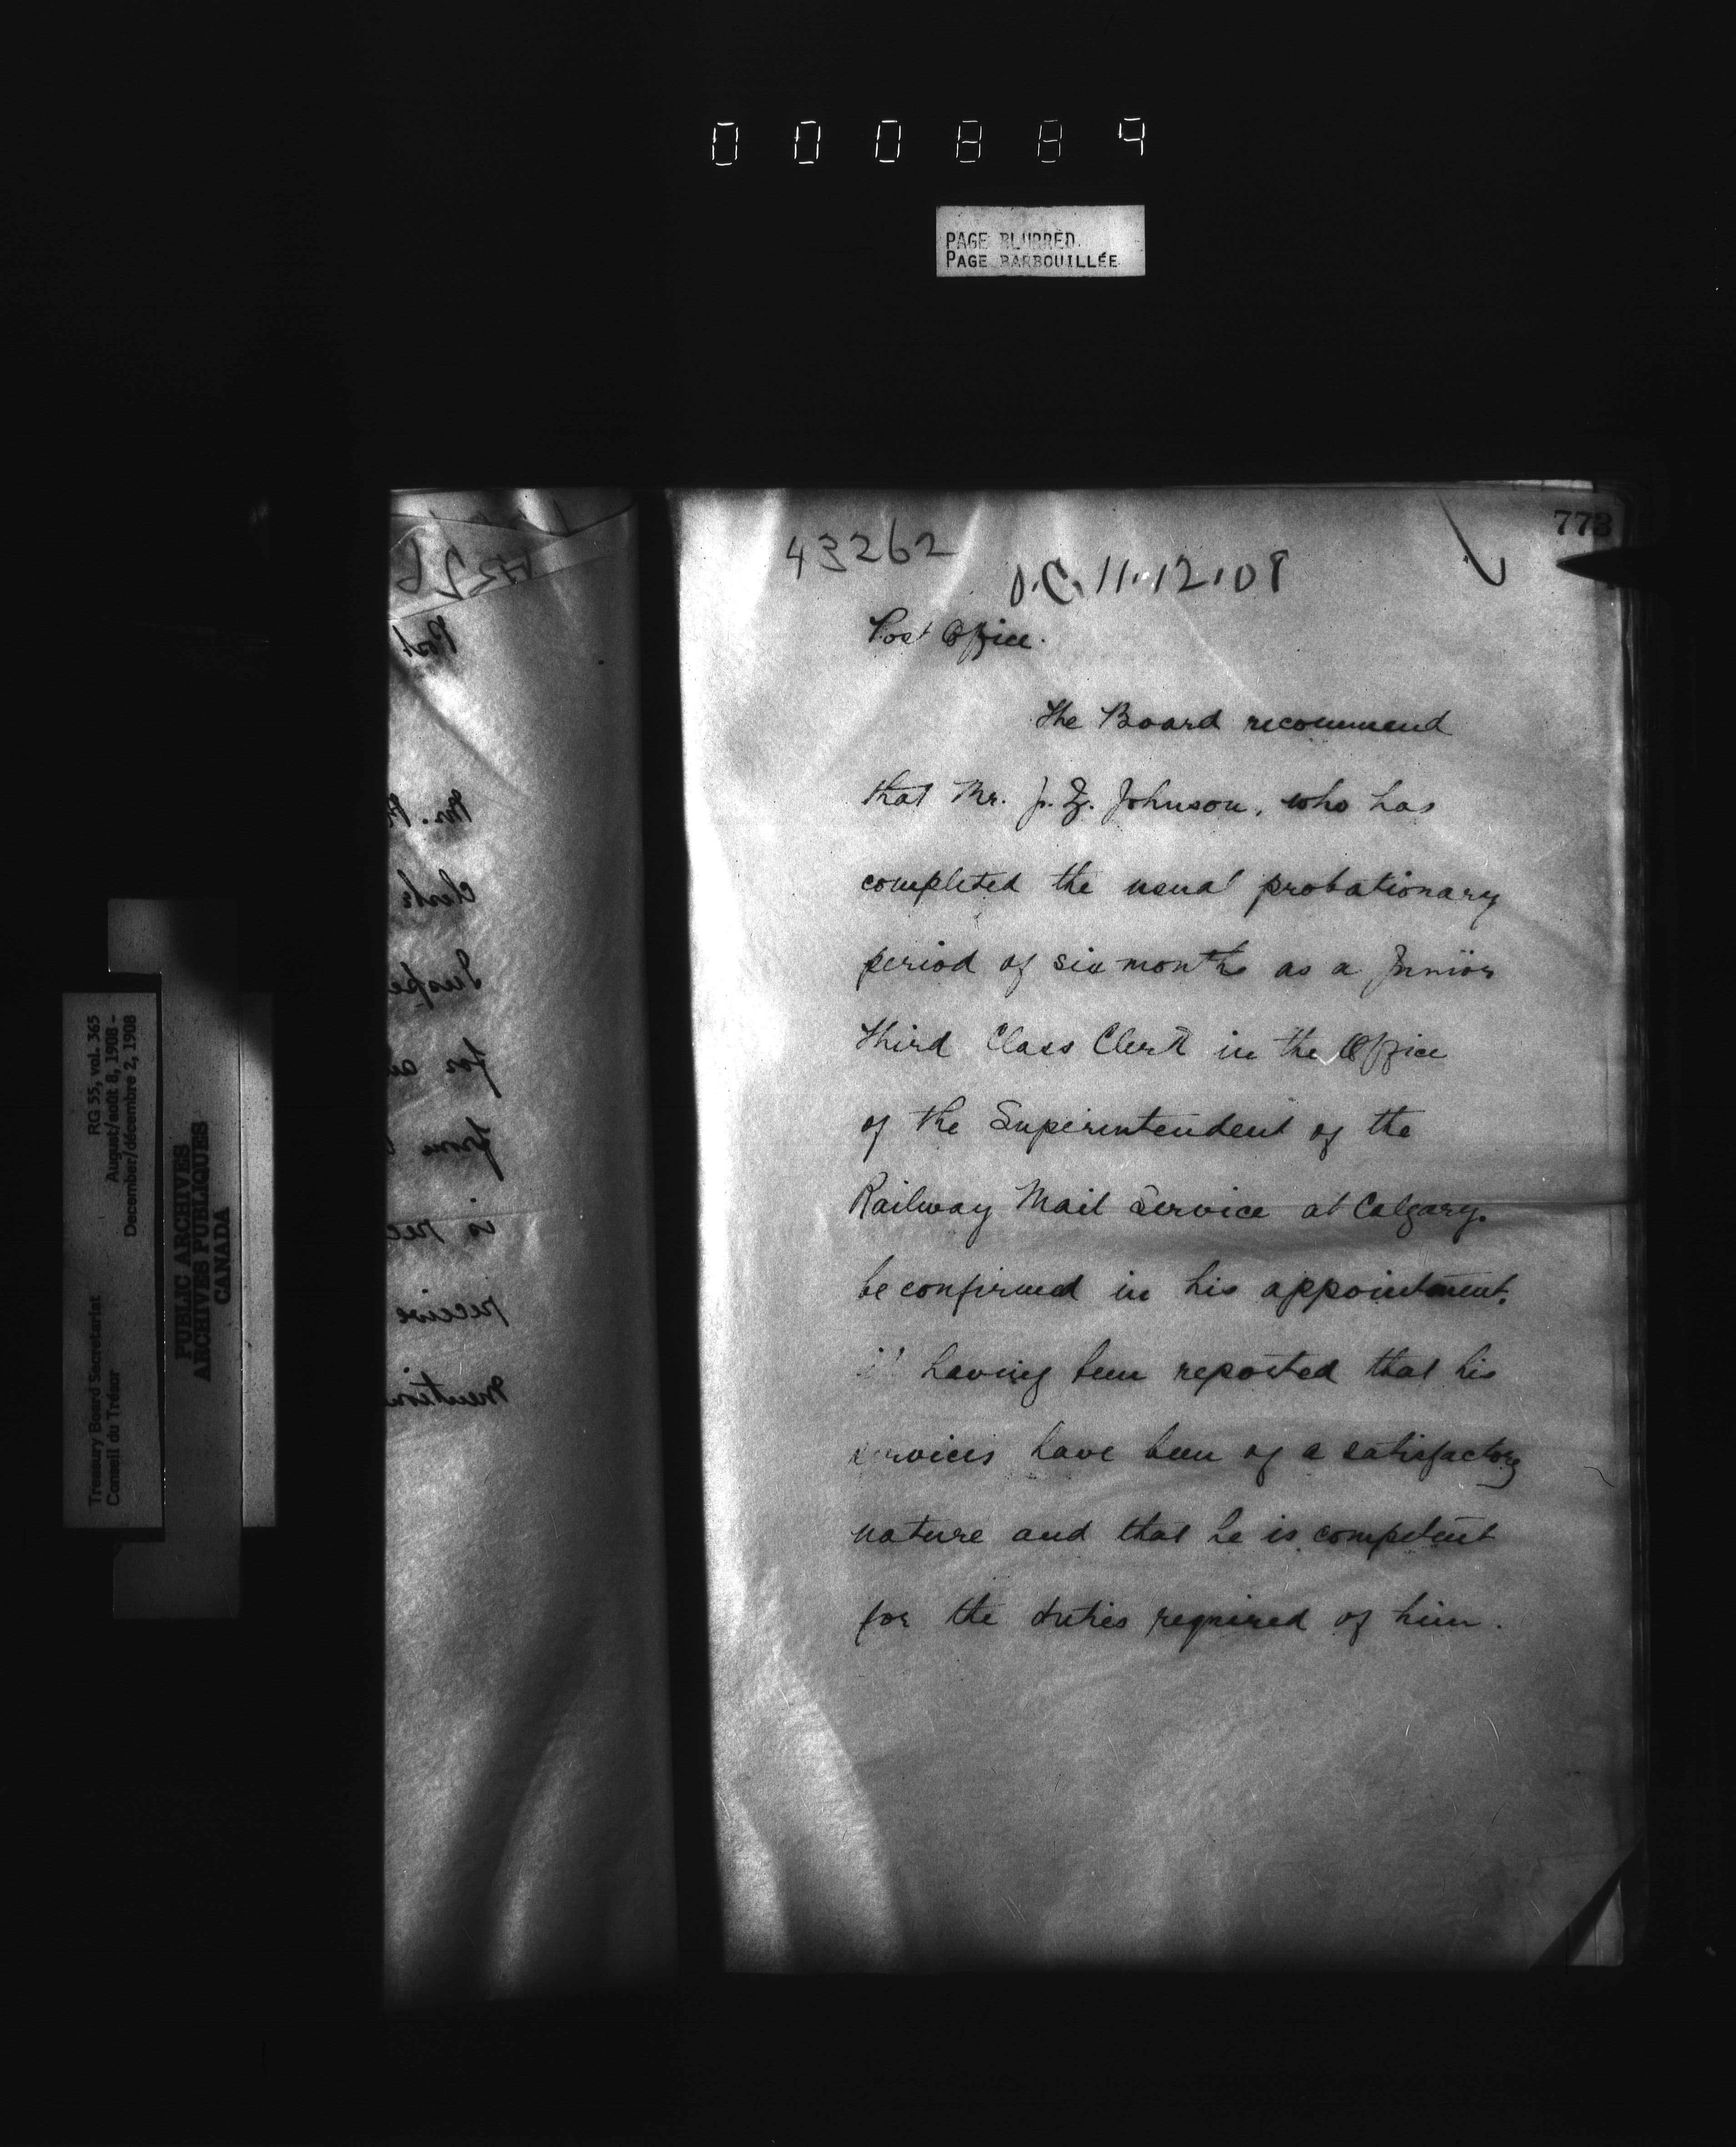 000889
PAGE BLURRED.
PAGE BARBOUILLÉE
773
43262
O.C. 11.12.08
Post Office.
The Board recommend
that Mr. J. Z. Johnson, who has
completed the usual probationary
period of six months as a Junior
Third Class Clerk in the Office
of the Superintendent of the
Railway Mail Service at Calgary.
be confirmed in his appointment,
it having been reported that his
services have been of a satisfactory
nature and that he is competent
for the duties required of him.
Post
Mr.
clerk
for
from
is
receive
Treasury Board Secretariat RG 55, vol. 365
Conseil du Trésor August/août 8, 1908 -
December/décembre 2, 1908
PUBLIC ARCHIVES
ARCHIVES PUBLIQUES
CANADA